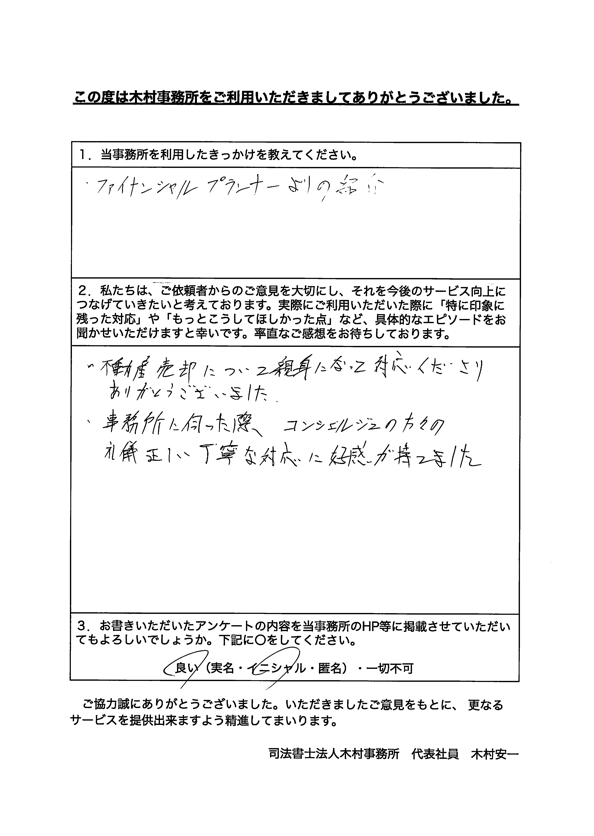 この度は木村事務所をご利用いただきましてありがとうございました。
1．当事務所を利用したきっかけを教えてください。
・ファイナンシャルプランナーよりの紹介
2．私たちは、ご依頼者からのご意見を大切にし、それを今後のサービス向上に
つなげていきたいと考えております。実際にご利用いただいた際に「特に印象に
残った対応」や「もっとこうしてほしかった点」など、具体的なエピソードをお
聞かせいただけますと幸いです。率直なご感想をお待ちしております。
・不動産売却について親身になって対応くださり
ありがとうございました.
・事務所に伺った際、コンシェルジュの方々の
礼儀正しい丁寧な対応に好感が持てました
3．お書きいただいたアンケートの内容を当事務所のHP等に掲載させていただい
てもよろしいでしょうか。下記に〇をしてください。
良い（実名・イニシャル・匿名）・一切不可
ご協力誠にありがとうございました。いただきましたご意見をもとに、更なる
サービスを提供出来ますよう精進してまいります。
司法書士法人木村事務所　代表社員　木村安一